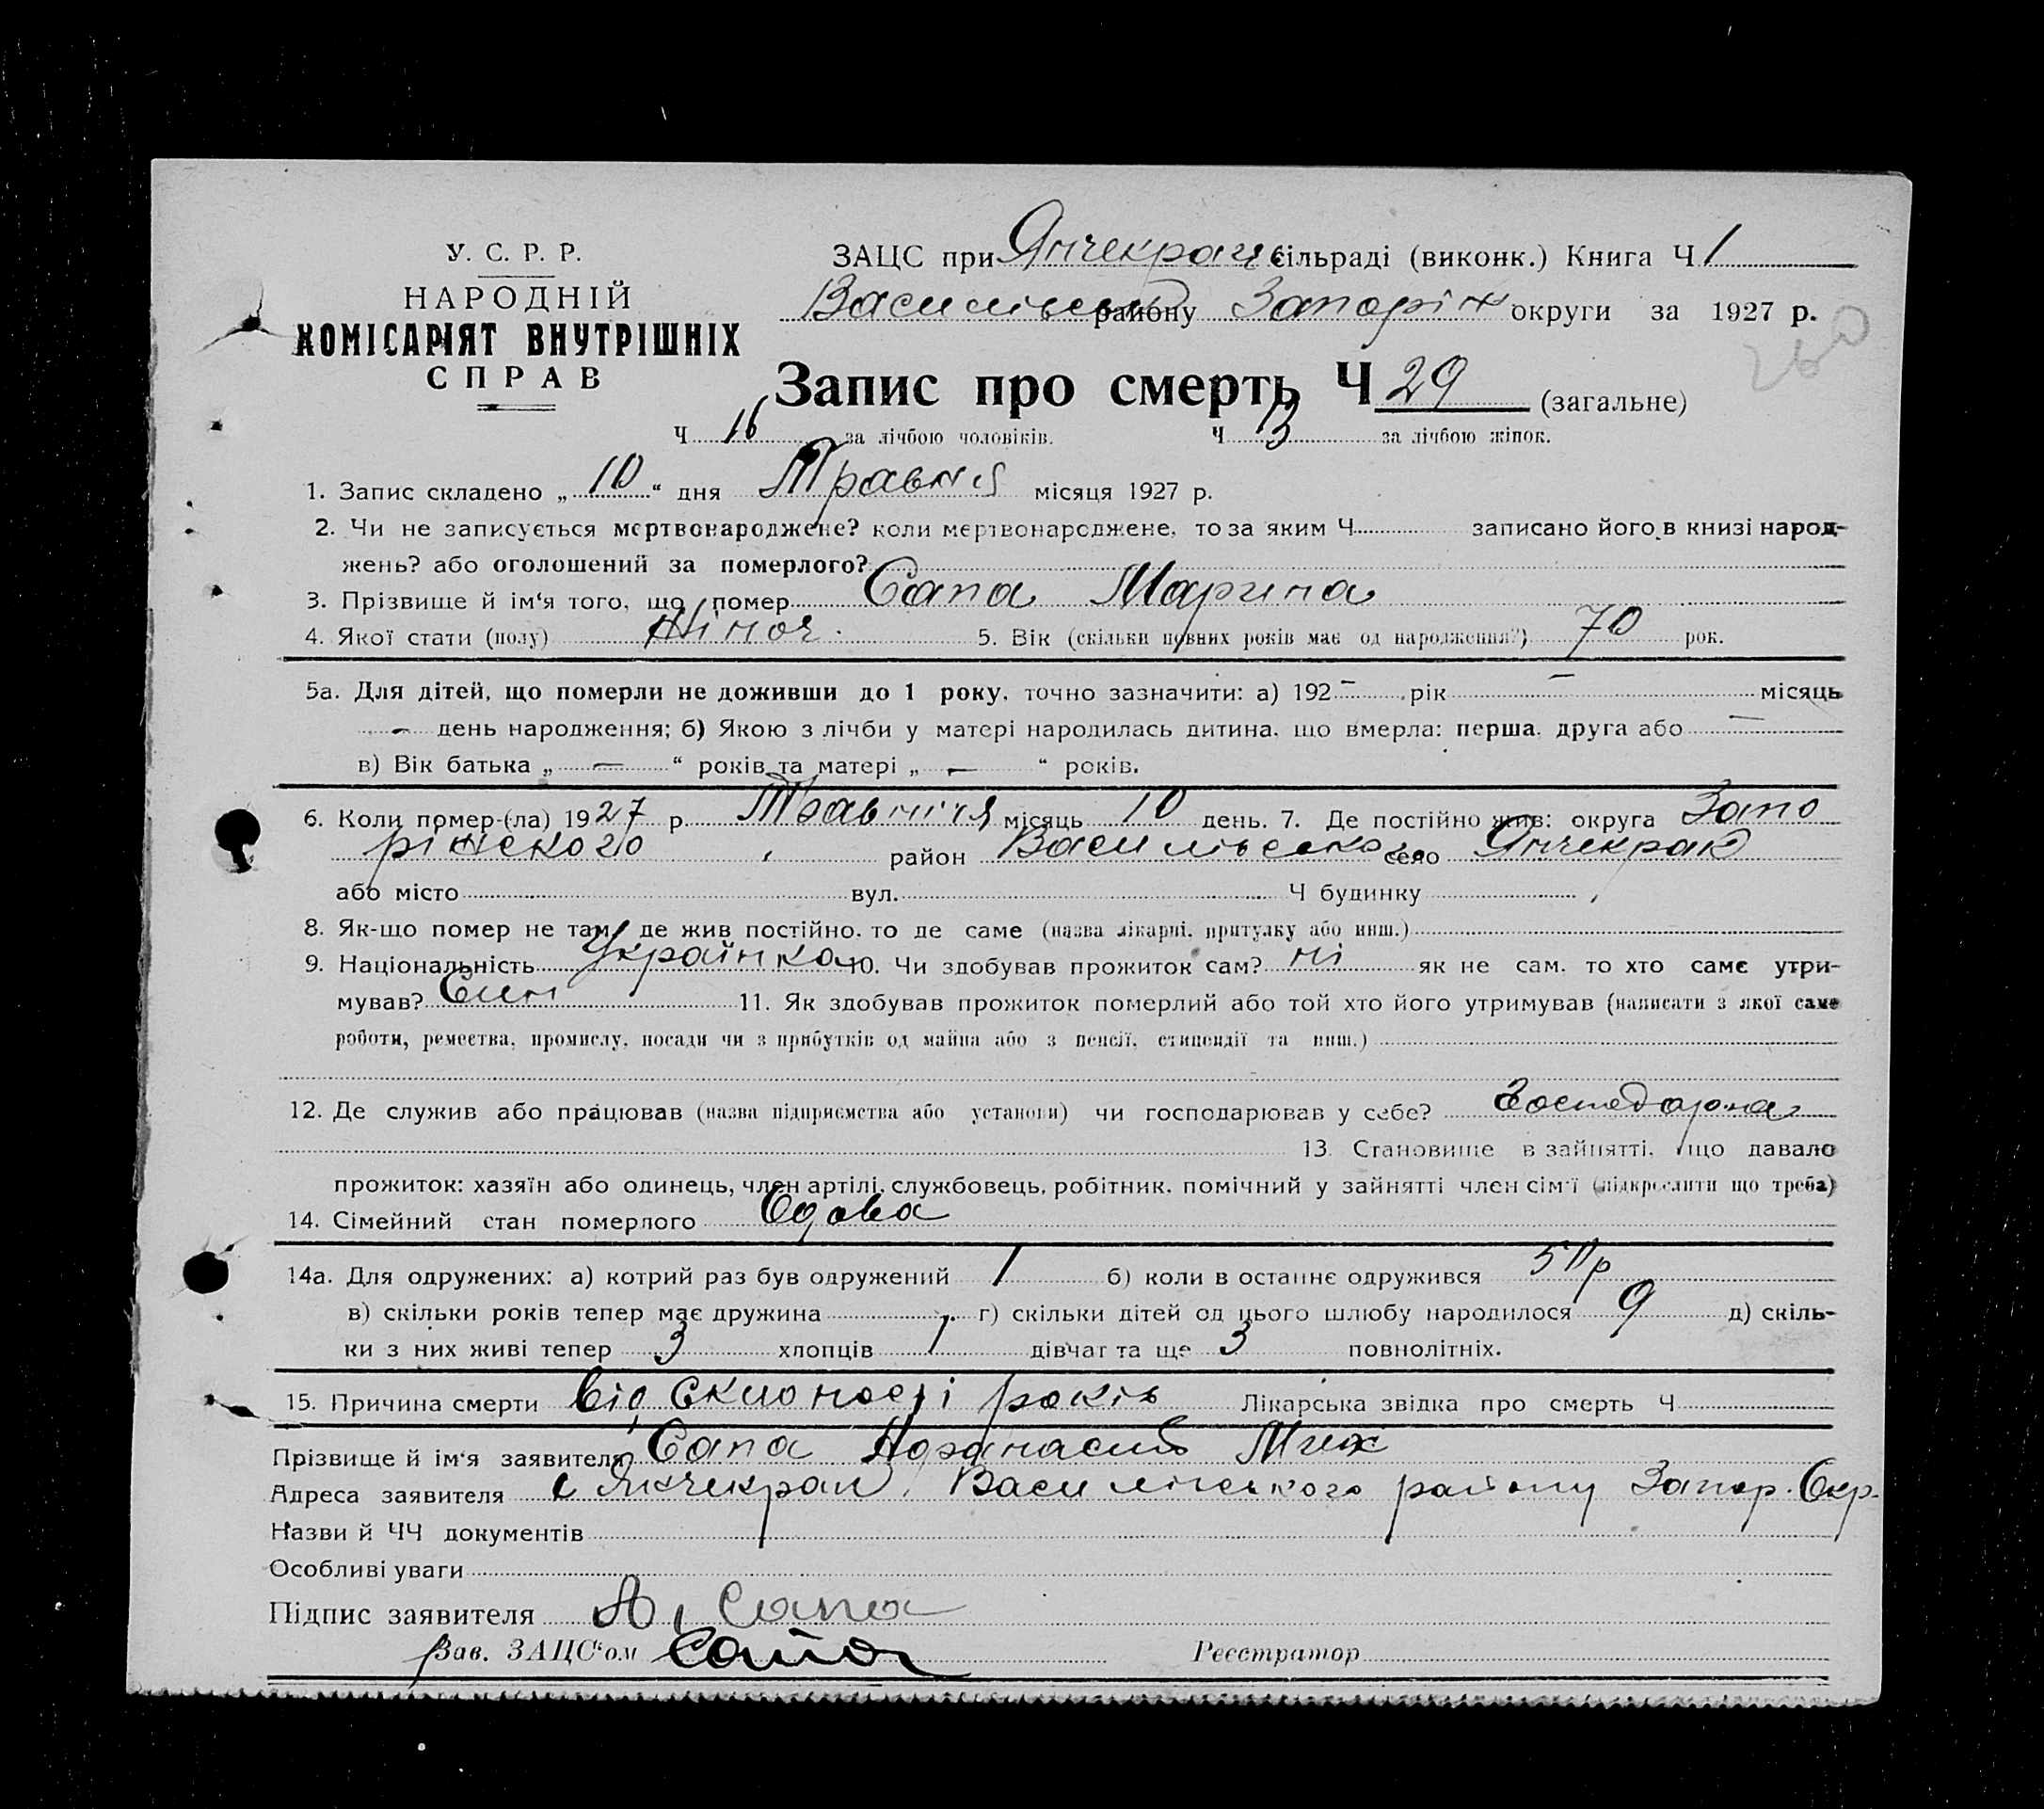 У. С. Р. Р.
НАРОДНІЙ
КОМІСАРІЯТ ВНУТРІШНІХ
СПРАВ
ЗАЦС при Янчекрац сільраді (виконк.) Книга Ч 1
Васильев району Запоріж округи за 1927 р.
260
Запис про смерть Ч 29 (загальне)
Ч 16 за лічбою чоловіків. Ч 13 за лічбою жінок.
1. Запис складено „ 10 “ дня Травня місяця 1927 р.
2. Чи не записується мертвонароджене? коли мертвонароджене, то за яким Ч записано його в книзі народ-
жень? або оголошений за померлого?
3. Прізвище й ім'я того, що помер Сапа Марина
4. Якої стати (полу) Жіноч. 5. Вік (скільки повних років має од народження?) 70 рок.
5а. Для дітей, що померли не доживши до 1 року, точно зазначити: а) 192 – рік – місяць
– день народження; б) Якою з лічби у матері народилась дитина, що вмерла: перша, друга або –
в) Вік батька „ – “ років та матері „ – “ років.
6. Коли помер-(ла) 1927 р. Травніня місяць 10 день. 7. Де постійно жив: округа Запо
ріжского район Васильвско село Янчекрак
або місто вул. Ч будинку
8. Як-що помер не там, де жив постійно, то де саме (назва лікарні, притулку або инш.)
9. Національність Українка 10. Чи здобував прожиток сам? ні як не сам, то хто саме утри-
мував? Син 11. Як здобував прожиток померлий або той хто його утримував (написати з якої саме
роботи, ремества, промислу, посади чи з прибутків од майна або з пенсії, стипендії та инш.)
12. Де служив або працював (назва підприємства або установи) чи господарював у себе? Господарка
13. Становище в зайнятті, що давало
прожиток: хазяїн або одинець, член артілі, службовець, робітник, помічний у зайнятті член сім'ї (підкреслити що треба)
14. Сімейний стан померлого Вдова
14а. Для одружених: а) котрий раз був одружений 1 б) коли в останнє одружився
в) скільки років тепер має дружина г) скільки дітей од цього шлюбу народилося 9 д) скіль-
ки з них живі тепер 3 хлопців 1 дівчат та ще 3 повнолітніх.
15. Причина смерти від склоності років Лікарська звідка про смерть Ч
Прізвище й ім'я заявителя Сапа Афанасий Мих
Адреса заявителя с Янчекрак Василівського району Запор. Окр.
Назви й ЧЧ документів
Особливі уваги
Підпис заявителя А. Сапа
Зав. ЗАЦС'ом Реєстратор